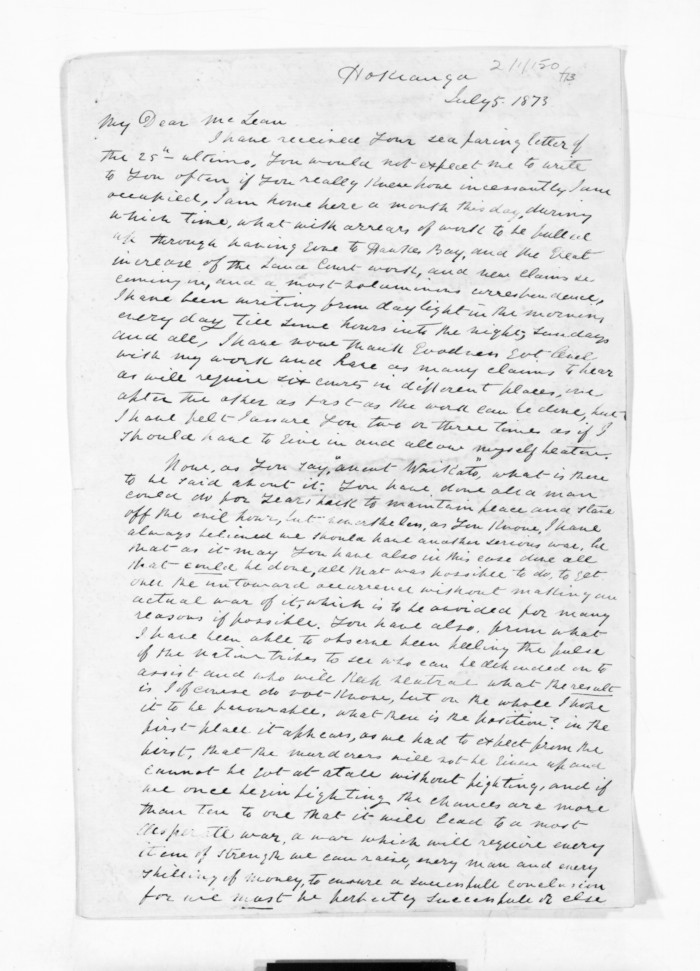 2/1/150
Hokianga
July 5. 1873
My Dear McLean
I have received your sea faring letter of
the 25th ultimo, You would not expect me to write
to You often if You really knew how incessantly I am
occupied, I am home here a month this day, during
which time, what with arrears of work to be pulled
up through having gone to Hawkes Bay, and the great
increase of the Land Court work, and new claims so
coming in, and a most voluminous correspondence,
I have been writing from daylight in the morning
every day till some hours into the night, Sundays
and all, I have now thank Goodness got level
with my work and have as many claims to hear
as will require six courts in different places, one
after the other as fast as the work can be done, but
I have felt I assure You two or three times as if I
should have to give in and allow myself beaten.
Now, as You say, "anent Waikato", what is there
to be said about it; You have done all a man
could do for years back to maintain peace and stave
off the evil hour, but nonetheless, as You know, I have
always believed we should have another serious war, be
that as it may You have also in this case done all
that could be done, all that was possible to do, to get
over the untoward occurrence without making an
actual war of it, which is to be avoided for many
reasons if possible. You have also, from what
I have been able to observe been feeling the pulse
of the native tribes to see who can be depended on to
assist and who will keep neutral what the result
is I of course do not know, but on the whole I hope
it to be favourable. what then is the position? in the
first place it appears, as we had to expect from the
first, that the murderers will not be given up and
cannot be got at atall without fighting, and if
we once begin fighting the chances are more
than ten to one that it will lead to a most
desperate war, a war which will require every
item of strength we can raise, every man and every
shilling of money, to ensure a successfull conclusion
for we must be perfectly successfull or else